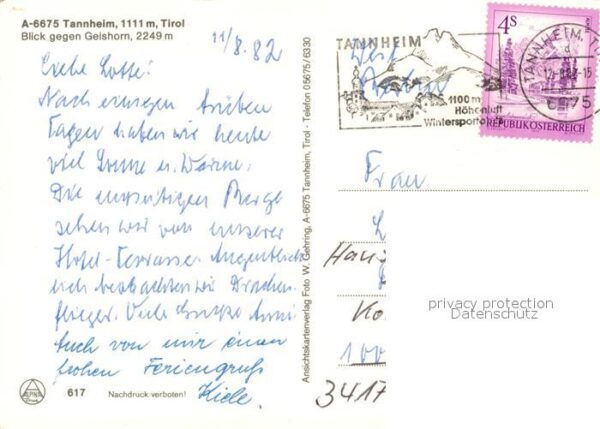 A-6675 Tannheim, 1111 m, Tirol
Blick gegen Geishorn, 2249 m
11/8.82
Liebe Lotte!
Nach einigen trüben
Tagen haben wir heute
viel Sonne u. Wärme.
Die Berge
sehen wir von unserer
Hotel-Terrasse. Augenblick-
lich beobachten wir Drachen-
flieger. Viele Grüße Anni
Auch von mir einen
frohen Feriengruß
ALPINA
617
Nachdruck verboten!
Ansichtskartenverlag Foto W. Gehring, A-6675 Tannheim, Tirol - Telefon 05675/6330
TANNHEIM
1100 m
Höhenluft
Wintersport
4S
REPUBLIK ÖSTERREICH
TANNHEIM, TI
6675
West
Berlin
Frau
L
Han
Ko
100
3417
privacy protection
Datenschutz